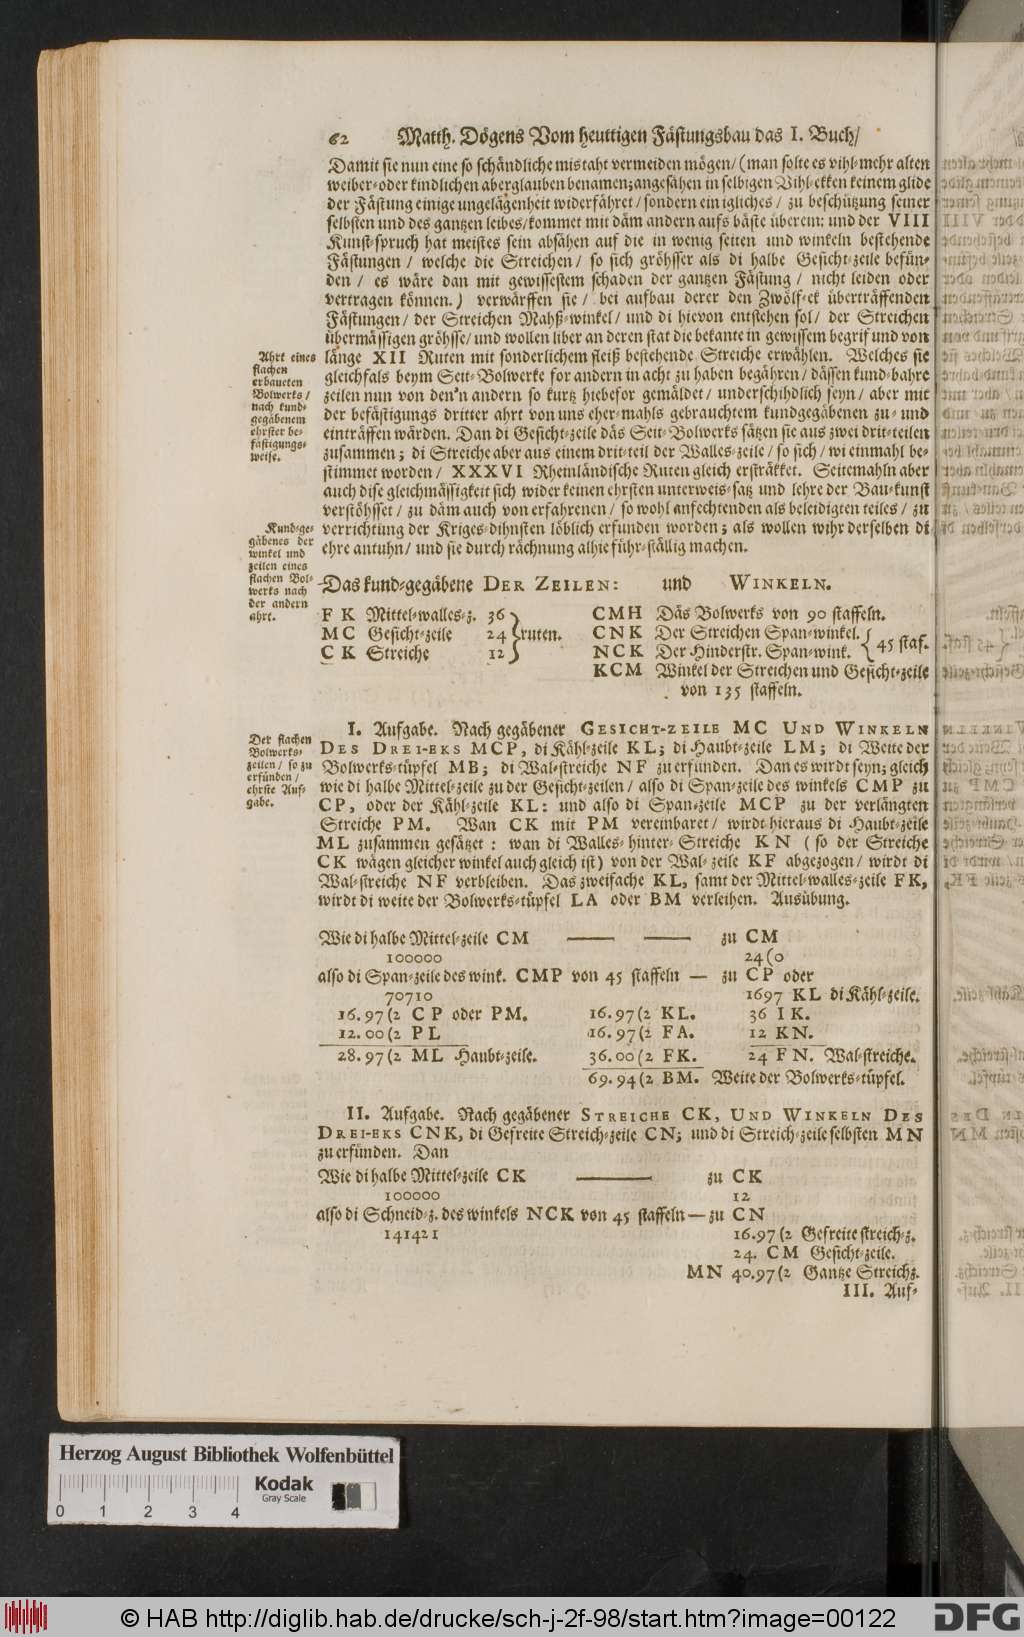 62 Matth. Dögens Vom heuttigen Fästungsbau das I. Buch/
Damit sie nun eine so schändliche mistaht vermeiden mögen/ (man solte es vihl-mehr alten
weiber- oder kindlichen aberglauben benamen; angesähen in selbigen Vihl-ekken keinem glide
der Fästung einige ungelägenheit widerfähret/ sondern ein igliches/ zu beschützung seiner
selbsten und des gantzen leibes/ kommet mit däm andern aufs bäste überein: und der VIII
Kunst-spruch hat meistes sein absähen auf die in wenig seiten und winkeln bestehende
Fästungen/ welche die Streichen/ so sich gröhsser als di halbe Gesicht-zeile befün-
den/ es wäre dan mit gewissestem schaden der gantzen Fästung/ nicht leiden oder
vertragen können.) verwärffen sie/ bei aufbau derer den Zwölf-ek überträffenden
Fästungen/ der Streichen Mahß-winkel/ und di hievon entstehen sol/ der Streichen
übermässigen gröhsse/ und wollen liber an deren stat die bekante in gewissem begrif und von
länge XII Ruten mit sonderlichem fleiß bestehende Streiche erwählen. Welches sie
gleichfals beym Seit-Bolwerke for andern in acht zu haben begähren/ dässen kund-bahre
zeilen nun von den'n andern so kurtz hiebefor gemäldet/ underschihdlich seyn/ aber mit
der befästigungs dritter ahrt von uns eher-mahls gebrauchtem kundgegäbenen zu- und
einträffen wärden. Dan di Gesicht-zeile däs Seit-Bolwerks sätzen sie aus zwei drit-teilen
zusammen; di Streiche aber aus einem drit-teil der Walles-zeile/ so sich/ wi einmahl be-
stimmet worden/ XXXVI Rheinländische Ruten gleich ersträkket. Seitemahln aber
auch dise gleichmässigkeit sich wider keinen ehrsten unterweis-satz und lehre der Bau-kunst
verstöhsset/ zu däm auch von erfahrenen/ so wohl anfechtenden als beleidigten teiles/ zu
verrichtung der Kriges-dihnsten löblich erfunden worden; als wollen wihr derselben di
ehre antuhn/ und sie durch rächnung alhie führ-ställig machen.
Ahrt eines
flachen
erbaueten
Bolwerks/
nach kund-
gegäbenem
ehrster be-
fästigungs-
weise.
Kund-ge-
gäbenes der
winkel und
zeilen eines
flachen Bol-
werks nach
der andern
ahrt.
Das kund-gegäbene DER ZEILEN: und WINKELN.
F K Mittel-walles-z. 36
M C Gesicht-zeile 24 ruten.
C K Streiche 12
CMH Däs Bolwerks von 90 staffeln.
CNK Der Streichen Span-winkel.
NCK Der Hinderstr. Span-wink. 45 staf.
KCM Winkel der Streichen und Gesicht-zeile
von 135 staffeln.
Der flachen
Bolwerks-
zeilen/ so zu
erfünden/
ehrste Auf-
gabe.
I. Aufgabe. Nach gegäbener GESICHT-ZEILE MC UND WINKELN
DES DREI-EKS MCP, di Kähl-zeile KL; di Haubt-zeile LM; di Weite der
Bolwerks-tüpfel MB; di Wal-streiche NF zu erfünden. Dan es wirdt seyn; gleich
wie di halbe Mittel-zeile zu der Gesicht-zeilen/ also di Span-zeile des winkels CMP zu
CP, oder der Kähl-zeile KL: und also di Span-zeile MCP zu der verlängten
Streiche PM. Wan CK mit PM vereinbaret/ wirdt hieraus di Haubt-zeile
ML zusammen gesätzet: wan di Walles-hinter-Streiche KN (so der Streiche
CK wägen gleicher winkel auch gleich ist) von der Wal-zeile KF abgezogen/ wirdt di
Wal-streiche NF verbleiben. Das zweifache KL, samt der Mittel-walles-zeile FK,
wirdt di weite der Bolwerks-tüpfel LA oder BM verleihen. Ausübung.
Wie di halbe Mittel-zeile CM — — zu CM
100000 24(0
also di Span-zeile des wink. CMP von 45 staffeln — zu CP oder
70710 1697 KL di Kähl-zeile.
16.97(2 CP oder PM. 16.97(2 KL. 36 IK.
12.00(2 PL 16.97(2 FA. 12 KN.
28.97(2 ML Haubt-zeile. 36.00(2 FK. 24 FN. Wal-streiche.
69.94(2 BM. Weite der Bolwerks-tüpfel.
II. Aufgabe. Nach gegäbener STREICHE CK, UND WINKELN DES
DREI-EKS CNK, di Gefreite Streich-zeile CN; und di Streich-zeile selbsten MN
zu erfünden. Dan
Wie di halbe Mittel-zeile CK — zu CK
100000 12
also di Schneid-z. des winkels NCK von 45 staffeln — zu CN
141421 16.97(2 Gefreite streich-z.
24. CM Gesicht-zeile.
MN 40.97(2 Gantze Streichz.
III. Auf-
Herzog August Bibliothek Wolfenbüttel
Kodak
Gray Scale
0 1 2 3 4
© HAB http://diglib.hab.de/drucke/sch-j-2f-98/start.htm?image=00122
DFG